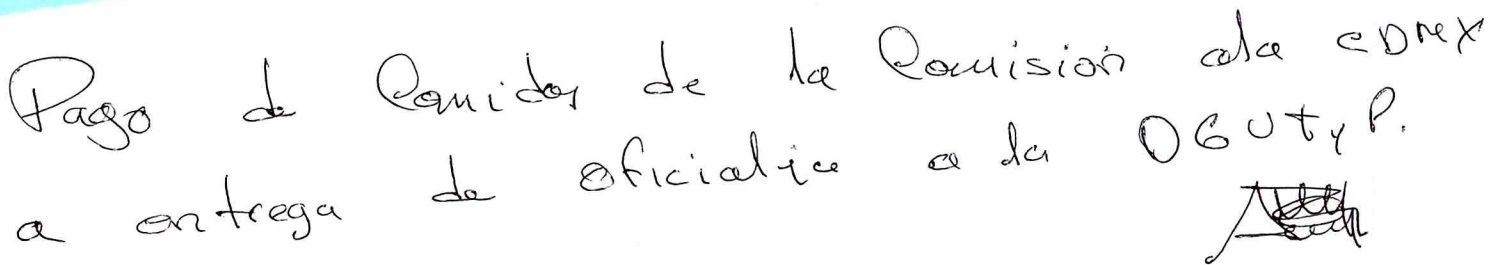 Pago de Comidas de la Comisión a la CDMX
a entrega de oficialia a la DGUTyP.